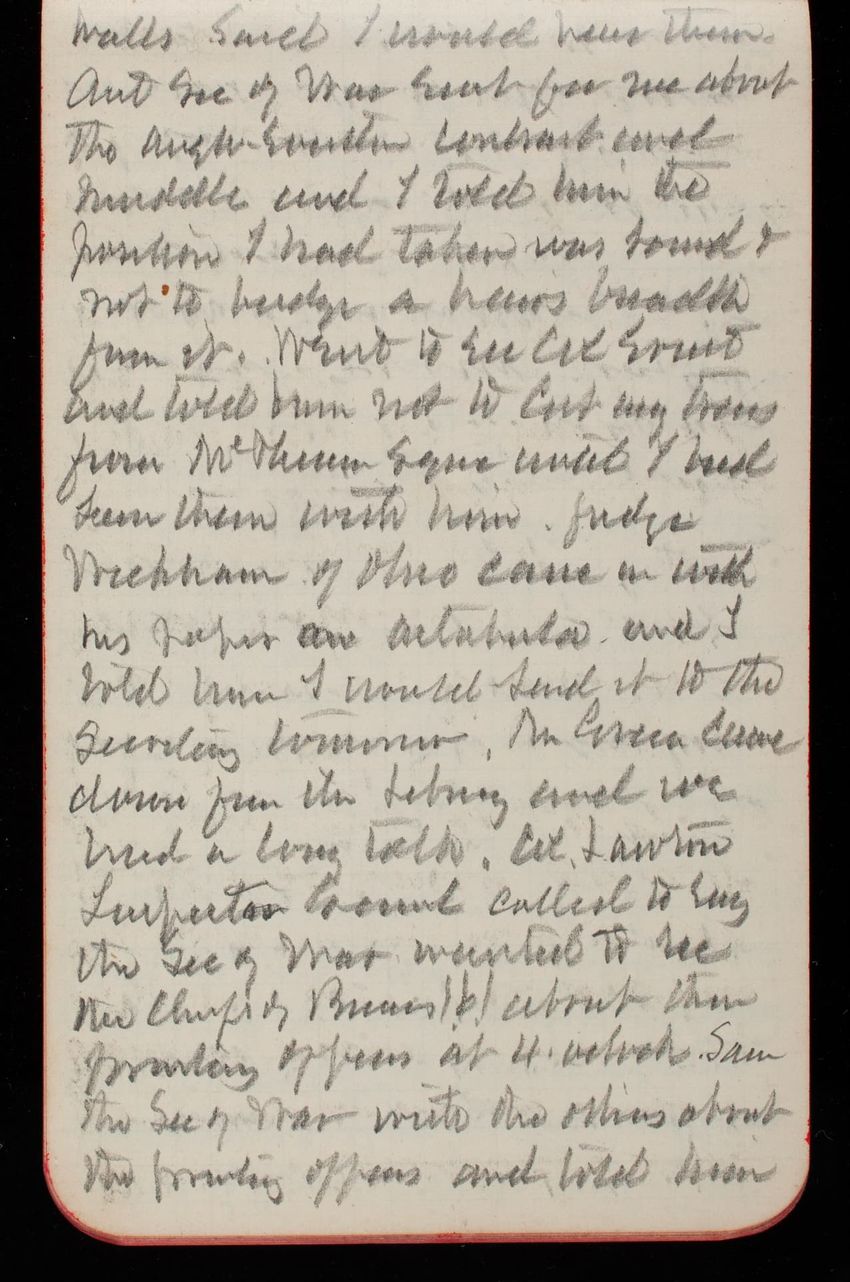 walls said I would hear them.
Ast Sec of War sent for me about
the contract and
muddle and I told him the
position I had taken was sound &
not to budge a hairs breadth
from it. Went to see Col Ernst
and told him not to cut any trees
from McPherson Square until I had
seen them with him. Judge
Wickham of Ohio came in with
his paper on Ashtabula and I
told him I would send it to the
Secretary tomorrow. Mr Green came
down from the Library and we
had a long talk. Col. Lawton
Inspector General called to say
the Sec of War wanted to see
the Chiefs of Bureaus about their
printing offices at 4. oclock. Saw
the Sec of War with the others about
the printing offices and told him